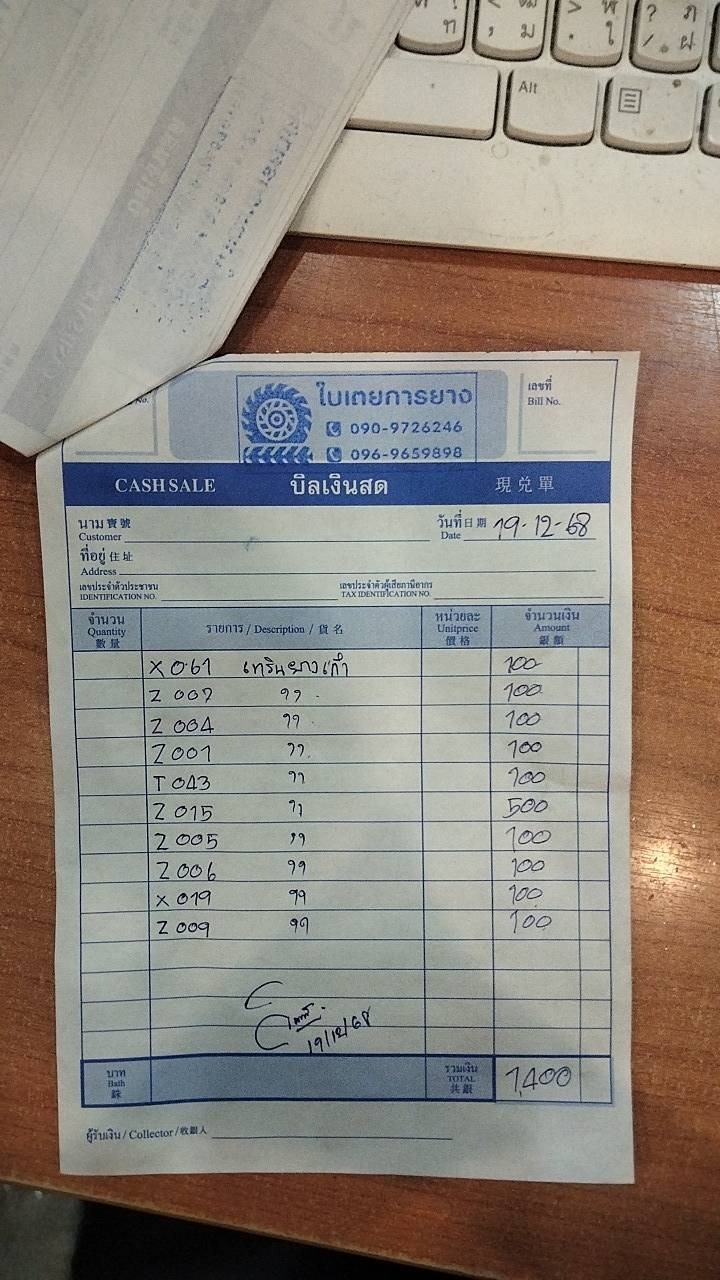 Alt
No.
ใบเตยการยาง
090-9726246
096-9659898
เลขที่
Bill No.
CASH SALE บิลเงินสด 現兌單
นาม 寶號
Customer
วันที่ 日期
Date 19-12-68
ที่อยู่ 住址
Address
เลขประจำตัวประชาชน
IDENTIFICATION NO.
เลขประจำตัวผู้เสียภาษีอากร
TAX IDENTIFICATION NO.
จำนวน
Quantity
數量
รายการ / Description / 貨名
หน่วยละ
Unitprice
價格
จำนวนเงิน
Amount
銀額
X 061 เทรินยางเก่า 100
Z 007 " 100
Z 004 " 100
Z 001 " 100
T 043 " 100
Z 015 " 500
Z 005 " 100
Z 006 " 100
X 019 " 100
Z 009 " 100
19/12/68
บาท
Bath
銖
รวมเงิน
TOTAL
共銀
1,400
ผู้รับเงิน / Collector / 收銀人